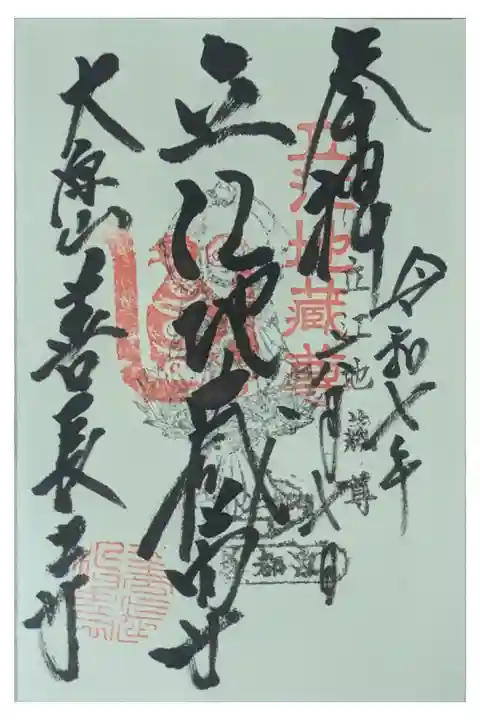 奉拝
令和七年
六月弐日
立江地蔵尊
立江地蔵尊
立江地蔵尊
大原山善長寺